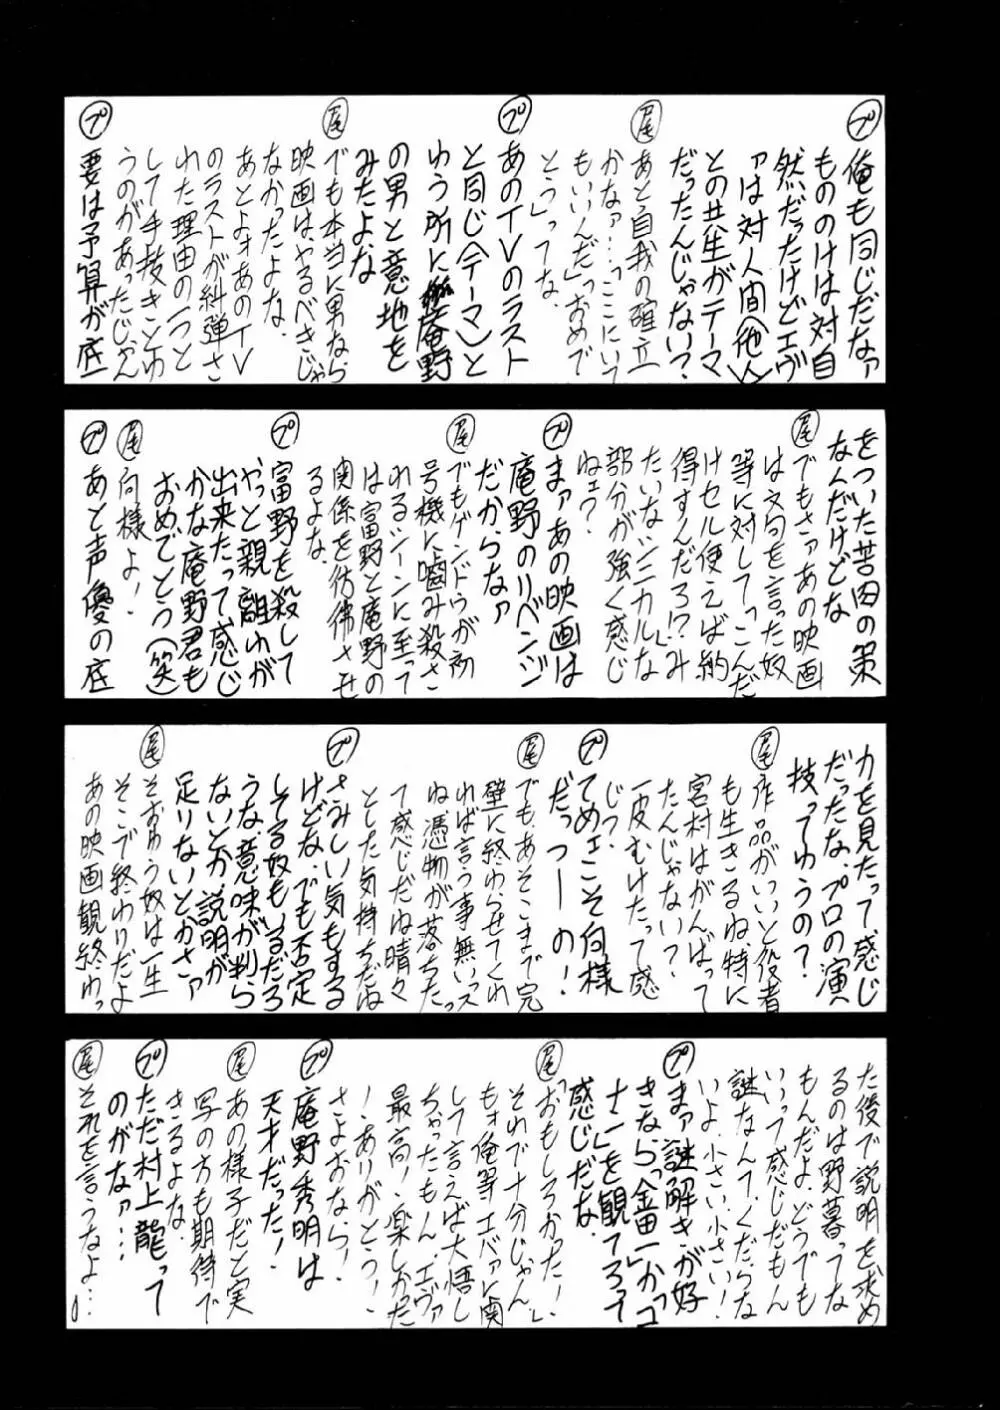 プ 俺も同じだなァ
もののけは対自
然だったけどエヴ
ァは対人間(他人)
との共生がテーマ
だったんじゃない?
尾 あと自我の確立
かなァ…「ここにいて
もいいんだ」「おめで
とう」ってな、
プ あのTVのラスト
と同じ〈テーマ〉と
ゆう所に庵野
の男と意地を
みたよな
尾 でも本当に男なら
映画は、やるべきじゃ
なかったよな、
あとよォあのTV
のラストが糾弾さ
れた理由の一つと
して手抜きとゆ
うのがあったじゃん
プ 要は予算が底
をついた苦肉の策
なんだけどな
尾 でもさァあの映画
は文句を言った奴
等に対して「こんだ
けセル使えば納
得すんだろ!?」み
たいな「シニカル」な
部分が強く感じ
ねェ?
プ まァあの映画は
庵野のリベンジ
だからなァ
尾 でもゲンドウが初
号機に噛み殺さ
れるシーンに至って
は富野と庵野の
関係を彷彿させ
るよな、
プ 富野を殺して
やっと親離れが
出来たって感じ
かな庵野君も
おめでとう(笑)
尾 何様よ!
プ あと声優の底
力を見たって感じ
だったな、プロの演
技ってゆうの?
尾 作品がいいと役者
も生きるね、特に
宮村はがんばって
たんじゃない?
一皮むけたって感
じっ、
プ てめェこそ何様
だっつーの!
尾 でも、あそこまで完
璧に終わらせてくれ
れば言う事無いっス
ね憑物が落ちたっ
て感じだね晴々
とした気持ちだね
プ さみしい気もする
けどな、でも否定
してる奴もいるだろ
うな、意味が判ら
ないとか、説明が
足りないとかさァ
尾 そおゆう奴は一生
そこで終わりだよ
あの映画観終わっ
た後で説明を求め
るのは野暮ってな
もんだよ、どうでも
いいって感じだもん
謎なんて、くだらな
いよ、小さい、小さい!
プ まァ謎解きが好
きなら「金田一」か「コ
ナン」を観てろって
感じだな、
尾 「おもしろかった!」
それで十分じゃん、
もォ俺等エバァに関
して言えば大悟し
ちゃったもん、エヴァ
最高!、楽しかた
!、ありがとう!、
さよおなら!
プ 庵野秀明は
天才だった!
尾 あの様子だと実
写の方も期待で
きるよな、
プ ただ村上龍って
のがなァ…
尾 それを言うなよ…♪